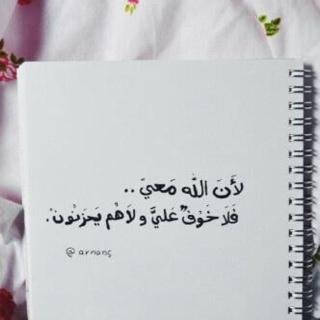 لأَنَ الله مَعيَ ..
فَلَا خَوْفٌ عَليَّ ولَاهُم يَحزَنُونْ.
@ arnans